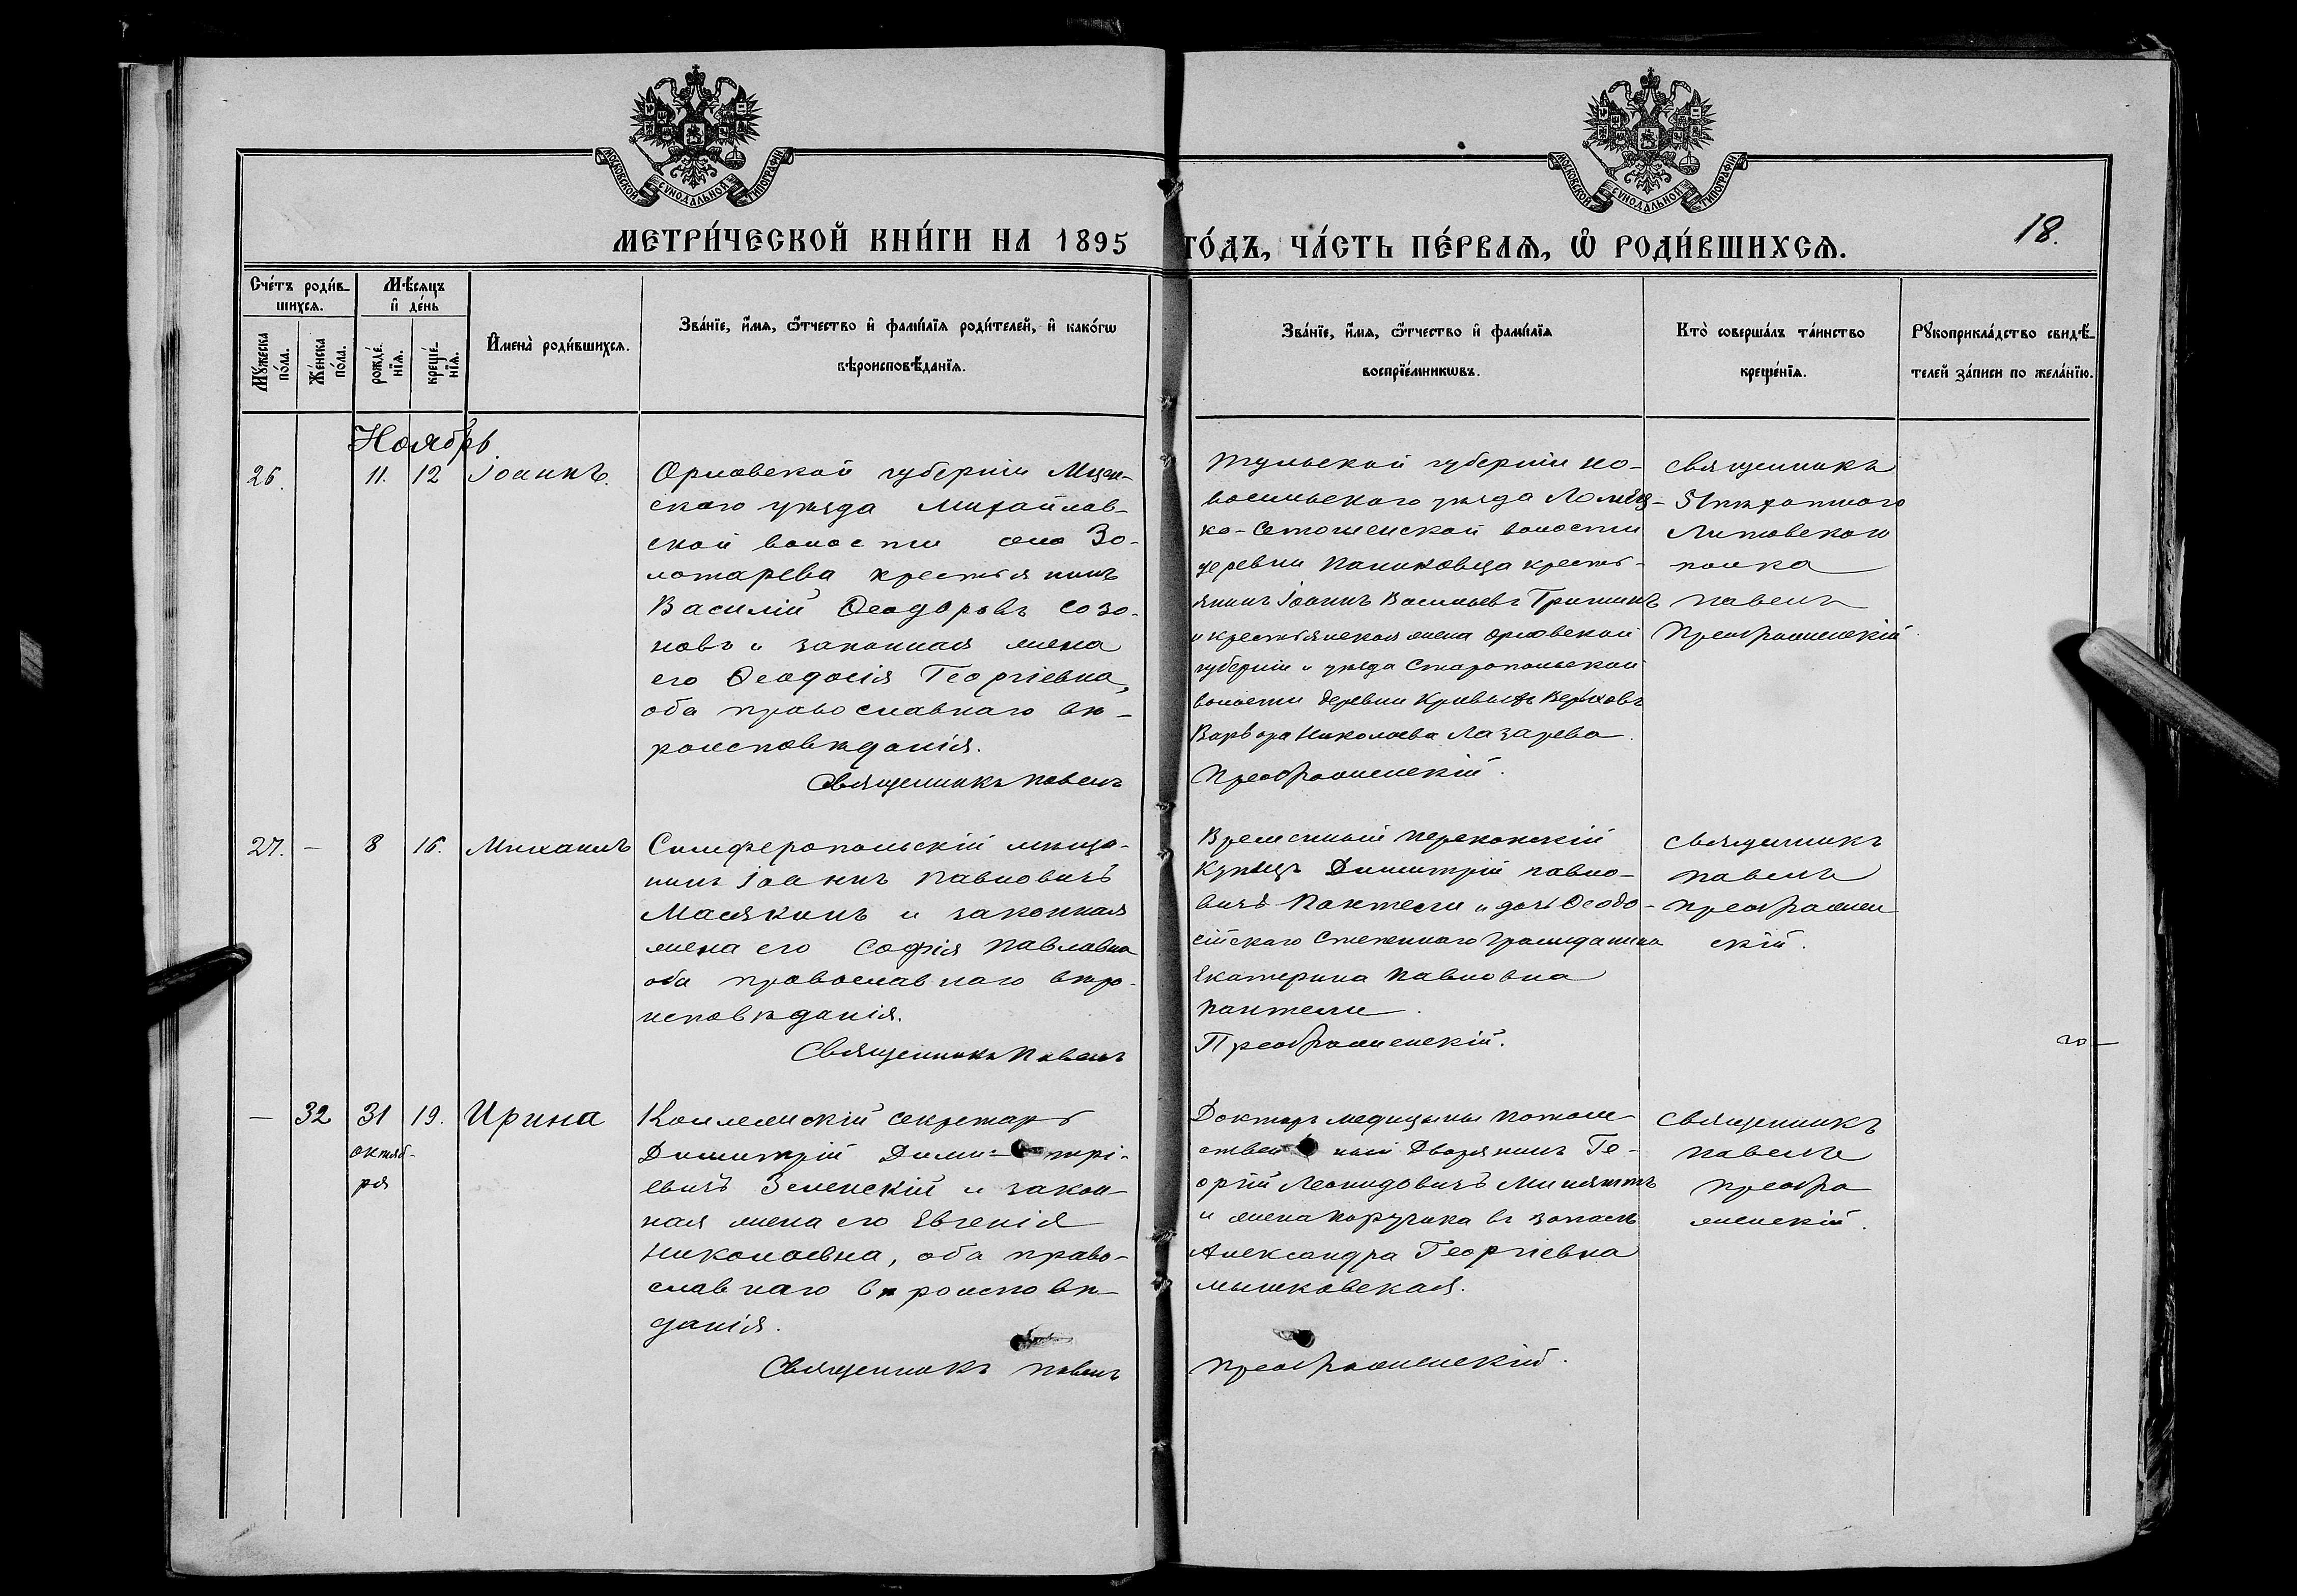 МОСКОВСКОЙ СѴНОДАЛЬНОЙ ТИПОГРАФІИ
МОСКОВСКОЙ СѴНОДАЛЬНОЙ ТИПОГРАФІИ
МЕТРИ́ЧЕСКОЙ КНИ́ГИ НА 1895 ГО́ДЪ, ЧА́СТЬ ПЕ́РВАѦ, Ѽ РОДИ́ВШИХСѦ.
18.
Сче́тъ роди́в-
шихсѧ.
Мѣ́сѧцъ
и҆ де́нь
Мꙋ́жеска
по́ла.
Же́нска
по́ла.
рожде́-
нїѧ.
креще́-
нїѧ.
И҆мена̀ роди́вшихсѧ.
Зва́нїе, и҆́мѧ, ѻ҆́тчество и҆ фами́лїѧ роди́телей, и҆ како́гѡ
вѣроисповѣ́данїѧ.
Зва́нїе, и҆́мѧ, ѻ҆́тчество и҆ фами́лїѧ
воспрїе́мникѡвъ.
Кто̀ соверша́лъ та́инство
креще́нїѧ.
Рꙋкоприкла́дство свидѣ́-
телей за́писи по жела́нїю.
Ноябрь
26. 11. 12 Іоаннъ.
Орловской губерніи Мцен-
скаго уѣзда Михайлов-
ской волости села Зо-
лотарева крестьянинъ
Василій Ѳеодоровъ Созо-
новъ и законная жена
его Ѳеодосія Георгіевна,
оба православнаго вѣ-
роисповѣданія.
Священникъ Павелъ
Тульской губерніи Но-
восильскаго уѣзда
волости
деревни Паниковца кресть-
янинъ Іоаннъ Васильевъ Гришинъ
и крестьянская жена Орловской
губерніи и уѣзда Старопольской
волости деревни Кривыхъ Верховъ
Варвара Николаева Лазарева.
Преображенскій.
Священникъ
Пѣхотнаго
Литовскаго
полка
Павелъ
Преображенскій.
27. — 8 16. Михаилъ
Симферопольскій мѣща-
нинъ Іоаннъ Павловичъ
Масякинъ и законная
жена его Софія Павловна
оба православнаго вѣро-
исповѣданія.
Священникъ Павелъ
Временный Перекопскій
Купецъ Димитрій Павло-
вичъ Пантели и дочь Ѳеодо-
сійскаго Степеннаго гражданина
Екатерина Павловна
Пантели.
Преображенскій.
Священникъ
Павелъ
Преображен
скій.
— 32 31 19. Ирина
октяб-
ря
Коллежскій секретарь
Димитрій Дими- трі-
евичъ Зеленскій и закон-
ная жена его Евгенія
Николаевна, оба право-
славнаго вѣроисповѣ-
данія.
Священникъ Павелъ
Докторъ медицины потом-
ствен ный Дворянинъ Ге-
оргій Леонидовичъ
и жена поручика въ запасѣ
Александра Георгіевна
Мышковская.
Преображенскій.
Священникъ
Павелъ
Преобра
женскій.